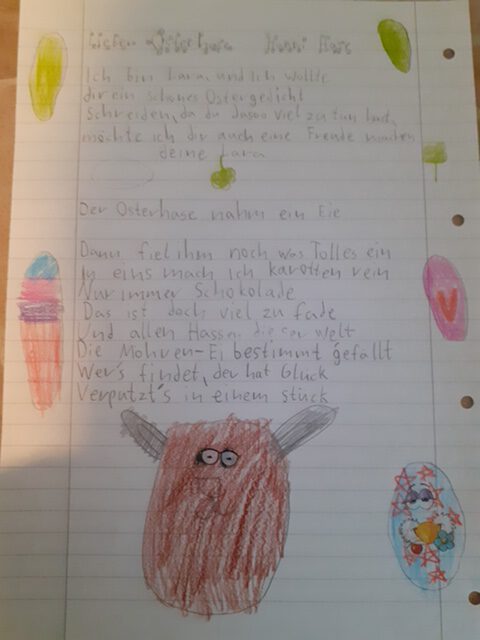 Lieber Osterhase Hanni Hase
Ich bin Lara und Ich wollte
dir ein schönes Ostergedicht
schreiben, da du dasoo viel zu tun hast,
möchte ich dir auch eine Freude machen
deine Lara
Der Osterhase nahm ein Eie
Dann fiel ihm noch was Tolles ein
In eins mach ich karotten rein
Nur immer Schokolade
Das ist doch viel zu fade
Und allen Hassen dieser Welt
Die Möhren-Ei bestimmt gefällt
Wer's findet, der hat Glück
Verputzt's in einem stück
V